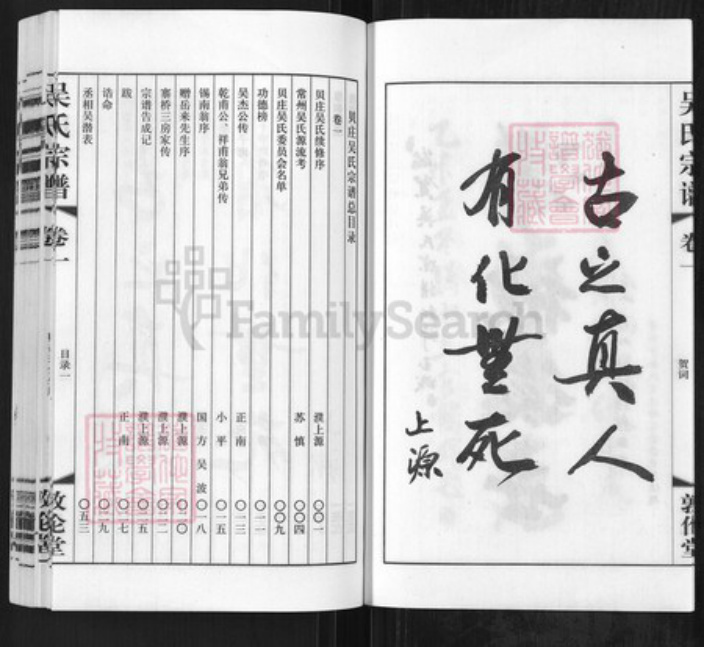 吴氏宗谱 卷一 贺词 敦伦堂
古之真人
有化無死
上源
贝庄吴氏宗谱总目录
卷一
贝庄吴氏续修序 濮上源 〇〇一
常州吴氏源流考 苏慎 〇〇四
贝庄吴氏委员会名单 〇〇九
功德榜 〇一一
吴杰公传 正南 〇一三
乾甫公、祥甫翁兄弟传 小平 〇一五
锡南翁序 国方 吴波 〇一八
赠岳来先生序 濮上源 〇二〇
寨桥三房家传 濮上源 〇二二
宗谱告成记 濮上源 〇二五
跋 正南 〇二七
诰命 〇二九
丞相吴潜表 〇五三
吴氏宗谱 卷一 目录一 敦伦堂
FamilySearch